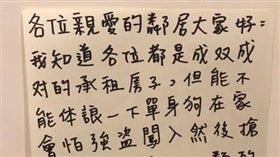 各位親愛的鄰居大家好：
我知道各位都是成双成
對的承租房子，但能不
能体諒一下單身狗在家
會怕強盜闖入然後搶